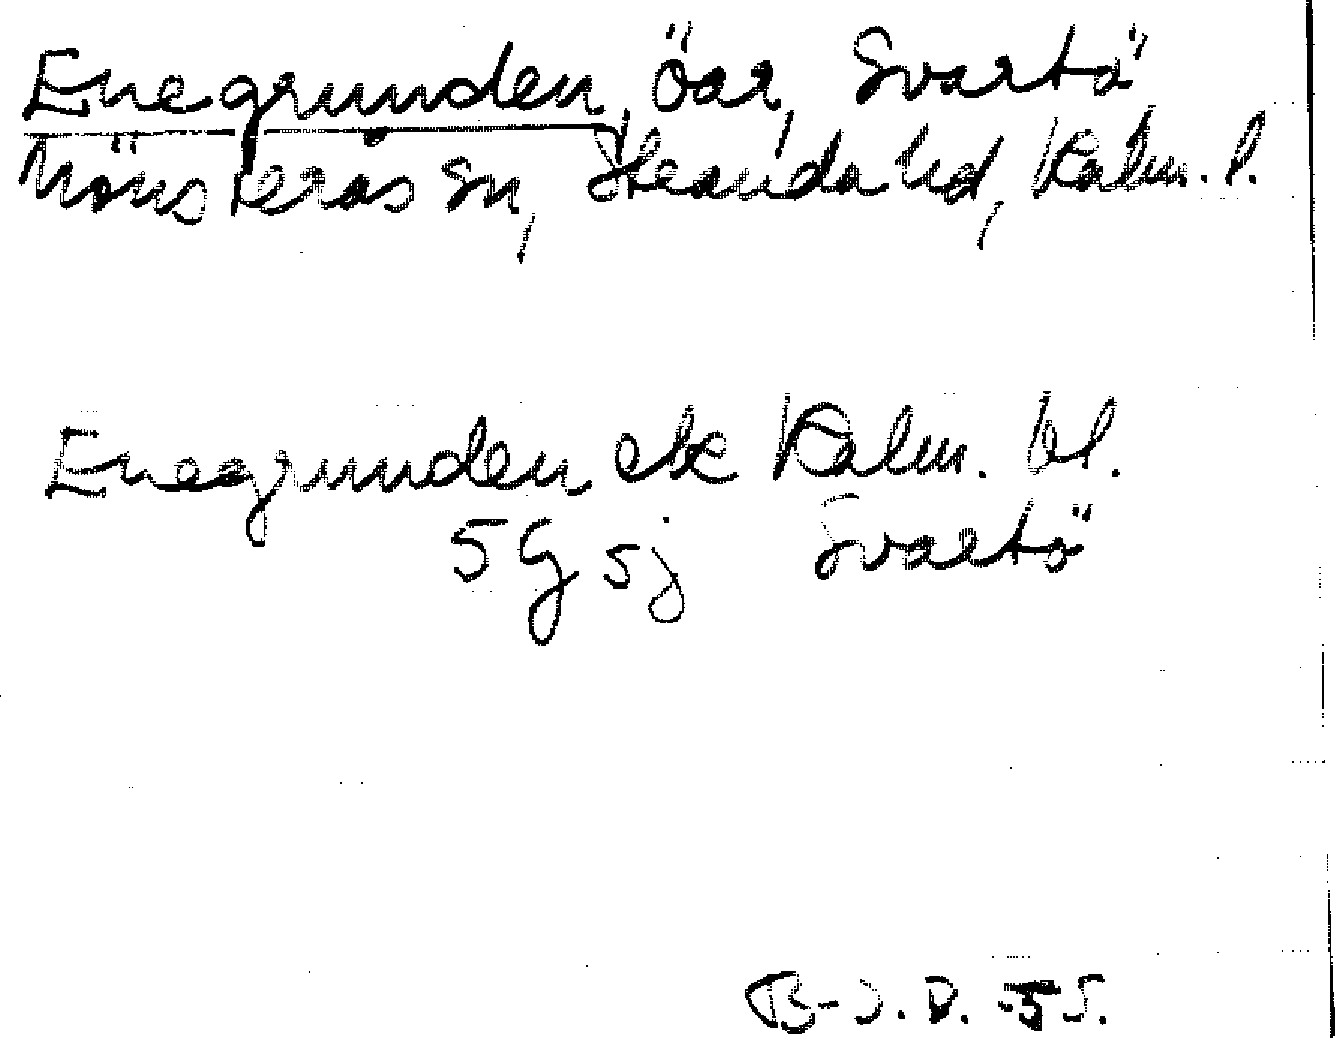 Enegrunden, öar, Svartö
Mönsterås sn, Stranda hd, Kalm. l.
Enegrunden ek Kalm. bl.
5G 5j Svartö
B-J.D. -55.